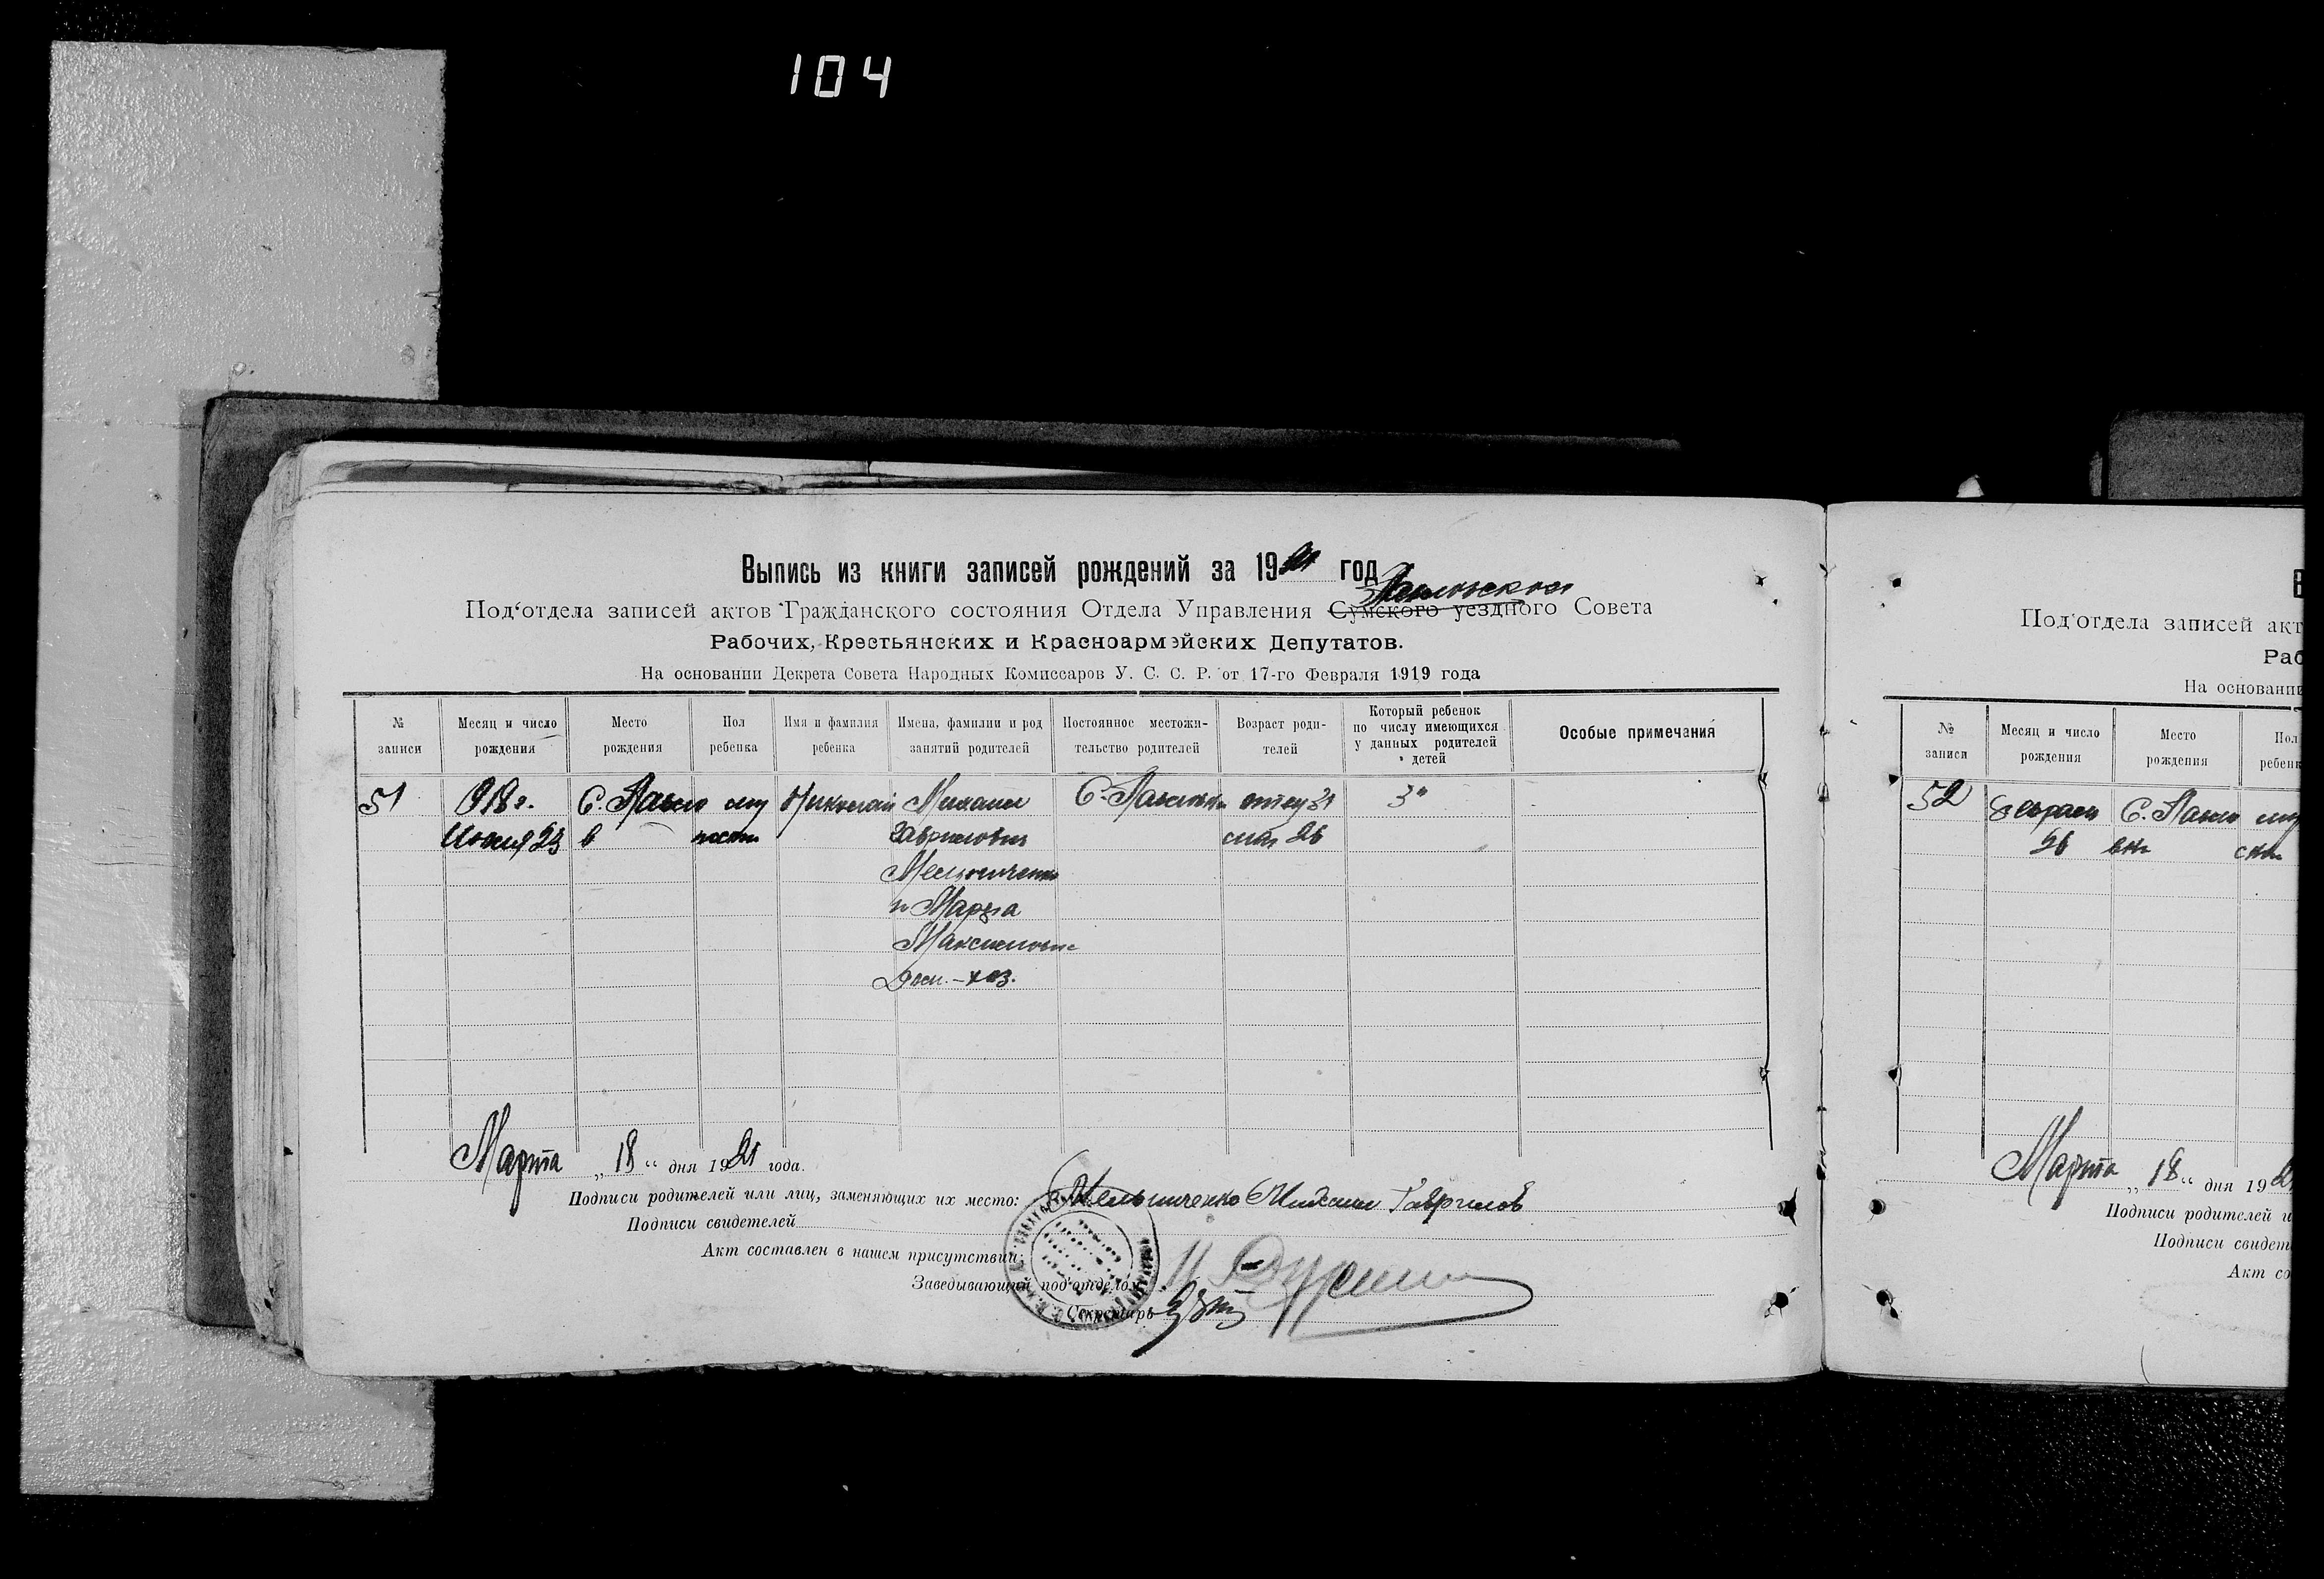 104
Выпись из книги записей рождений за 1921 год
Под'отдела записей актов Гражданского состояния Отдела Управления Сумского уездного Совета
Рабочих, Крестьянских и Красноармейских Депутатов.
На основании Декрета Совета Народных Комиссаров У. С. С. Р. от 17-го Февраля 1919 года
№ записи
Месяц и число рождения
Место рождения
Пол ребенка
Имя и фамилия ребенка
Имена, фамилии и род занятий родителей
Постоянное местожительство родителей
Возраст родителей
Который ребенок по числу имеющихся у данных родителей детей
Особые примечания
51 918 г. С. муж Николай Михаил С. отцу 31 3"
23 в Гаврилович 26
Мельниченко
и Марфа
Максимовна
Дом.-хоз.
Марта „ 18 “ дня 1921 года.
Подписи родителей или лиц, заменяющих их место: Мельниченко Михаил Гаврилов
Подписи свидетелей
Акт составлен в нашем присутствии:
Заведывающий под'отделом
Секретарь
Под'отдела записей акт
На основании
№ записи
Месяц и число рождения
Место рождения
Пол
52 Февраль С.
26
Марта „ 18 “ дня 19
Подписи родителей и
Подписи свидет
Акт со